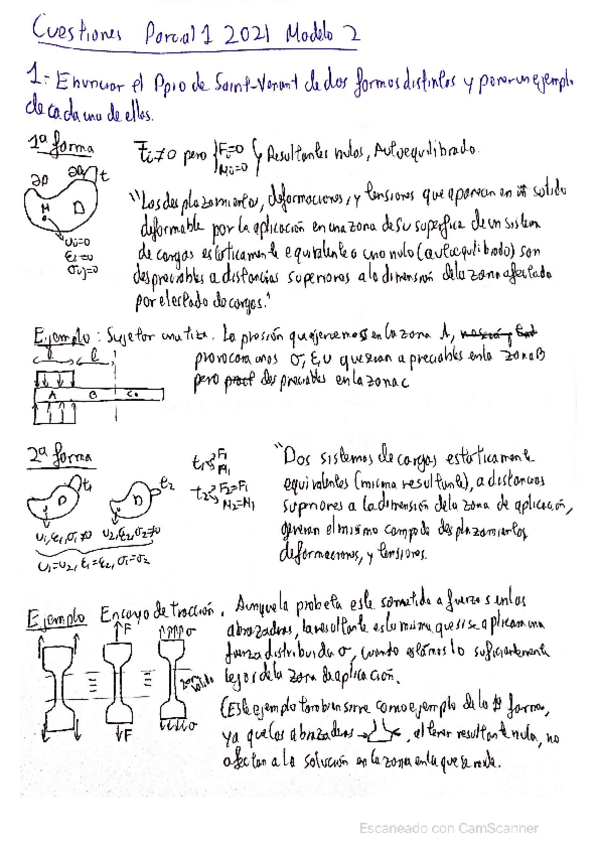 Cuestiones Parcial 1 2021 Modelo 2
1.- Enunciar el Ppio de Saint-Venant de dos formas distintas y poner un ejemplo
de cada una de ellas.
1ª forma
ti≠0 pero { Fi=0 Mi=0 } Resultantes nulos, Autoequilibrado.
∂D t
D
ui=0
εi=0
σij=0
"Los desplazamientos, deformaciones, y tensiones que aparecen en un solido
deformable por la aplicación en una zona de su superficie de un sistema
de cargas estáticamente equivalente a uno nulo (autoequilibrado) son
despreciables a distancias superiores a la dimensión de la zona afectada
por el estado de cargas."
Ejemplo: Sujetar una tiza. La presión que ejercemos en la zona A,
provocara unos σ, ε, u que sean apreciables en la zona B
pero despreciables en la zona C
l l
A B C
2ª forma
t1 F1 M1
t2 F2=F1 M2=M1
D t1 D t2
u1,ε1,σ1≠0 u2,ε2,σ2≠0
u1=u2, ε1=ε2, σ1=σ2
"Dos sistemas de cargas estáticamente
equivalentes (misma resultante), a distancias
superiores a la dimensión de la zona de aplicación,
generan el mismo campo de desplazamientos
deformaciones, y tensiones.
Ejemplo Ensayo de tracción. Aunque la probeta este sometida a fuerzas en las
abrazaderas, la resultante es la misma que si se aplicam una
fuerza distribuida σ, cuando estamos lo suficientemente
lejos de la zona de aplicación.
F σ
F σ
(Este ejemplo tambien sirve como ejemplo de la 1ª forma,
ya que las abrazaderas, al tener resultante nula, no
afectan a la solución en la zona en la que se mide.
Escaneado con CamScanner